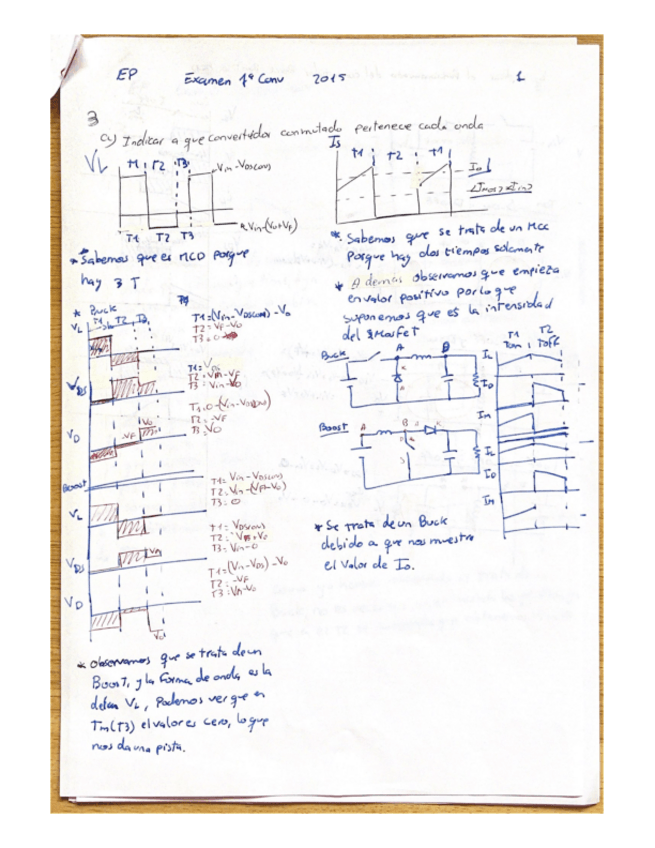 EP Examen 1ª Conv 2015 1
3
a) Indicar a que convertidor conmutado pertenece cada onda
VL T1 T2 T3 Vin-VDSCON)
Vin-(Vo+VF)
T1 T2 T3
* Sabemos que es MCD porque
hay 3 T
Is T1 T2 T1
Io
* Sabemos que se trata de un MCC
Porque hay dos tiempos solamente
* Además observamos que empieza
en valor positivo por lo que
suponemos que es la intensidad
del Mosfet
* Buck
T1 T2 T3
VL
T1=(Vin-VDSCON)-Vo
T2=-VF-Vo
T3=0
VDS
T2=Vin-VF
T3=Vin-Vo
VD
-VF Vo
T2=-VF
T3=Vo
Boost
T1=Vin-VDSCON
T2=Vin-(VF-Vo)
T3=0
VL
T1=VDSCON
T3=Vin-0
VDS Vin
T1=(Vin-VDS)-Vo
T2=-VF
VD
Buck A B
Boost A B
T1 T2
Ton Toff
IL
Io
Im
IL
Io
Im
* Se trata de un Buck
debido a que nos muestra
el valor de Io.
* Observamos que se trata de un
Boost, y la forma de onda es la
de VL, Podemos ver que en
Tm(T3) el valor es cero, lo que
nos da una pista.